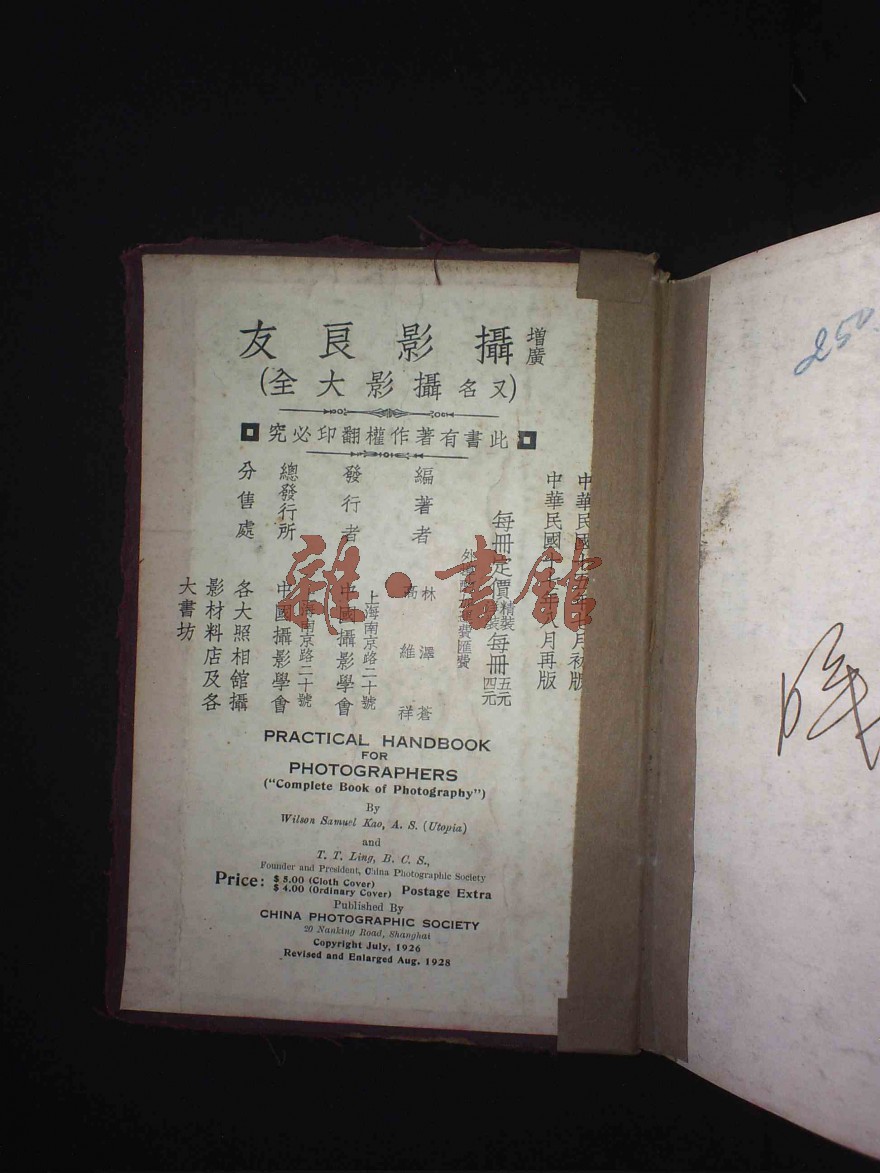 增廣
攝影良友
(又名攝影大全)
此書有著作權翻印必究
中華民國十五年七月初版
中華民國十七年八月再版
每冊定價精裝每冊五元
四元
編著者
林澤蒼
高維祥
發行者
上海南京路二十號
中國攝影學會
總發行所
上海南京路二十號
中國攝影學會
分售處
各大照相館攝
影材料店及各
大書坊
雜·書館
PRACTICAL HANDBOOK
FOR
PHOTOGRAPHERS
("Complete Book of Photography")
By
Wilson Samuel Kao, A. S. (Utopia)
and
T. T. Ling, B. C. S.,
Founder and President, China Photographic Society
Price: $ 5.00 (Cloth Cover)
$ 4.00 (Ordinary Cover) Postage Extra
Published By
CHINA PHOTOGRAPHIC SOCIETY
20 Nanking Road, Shanghai
Copyright July, 1926
Revised and Enlarged Aug. 1928
250